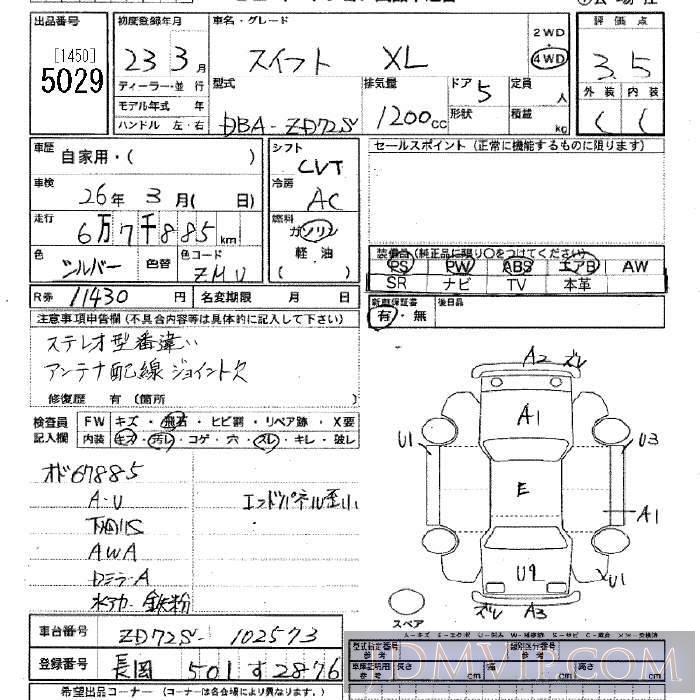 出品番号
[1450]
5029
初度登録年月
23 3月
ディーラー・並行
モデル年式 年
ハンドル 左・右
車名・グレード
スイフト XL
2WD
4WD
型式
DBA-ZD72S
排気量
1200cc
ドア
5
形状
定員
人
積載
kg
評価点
3.5
外装 内装
C C
車歴
自家用・( )
車検
26年 3月( 日)
走行
6万7千885km
色
シルバー
色替
色コード
ZMU
シフト
CVT
冷房
AC
燃料
ガソリン
軽油
( )
R券 11430 円
名変期限 月 日
セールスポイント(正常に機能するものに限ります)
装備品(純正品に限り○をつけてください)
PS PW ABS エアB AW
SR ナビ TV 本革
新車保証書
有・無
後日品
注意事項申告欄(不具合内容等は具体的に記入して下さい)
ステレオ型番違い
アンテナ配線ジョイント欠
修復歴 有(箇所
検査員
記入欄
FW キズ・飛石・ヒビ割・リペア跡・X要
内装 キズ・汚レ・コゲ・穴・スレ・キレ・破レ
オド67885
A・U
AWA
Dミラー A
水アカ 鉄粉
エンドパネル歪小
A2 ズレ
A1
U1
U3
E
A1
U9
XU1
ズレ A3
スペア
車台番号 ZD72S-102573
登録番号 長岡 501 す 2876
型式指定番号
類別区分番号
車庫証明用
参考
長さ cm
幅 cm
高さ cm
希望出品コーナー(コーナーは各会場によって異なります。)
JDMVIP.COM